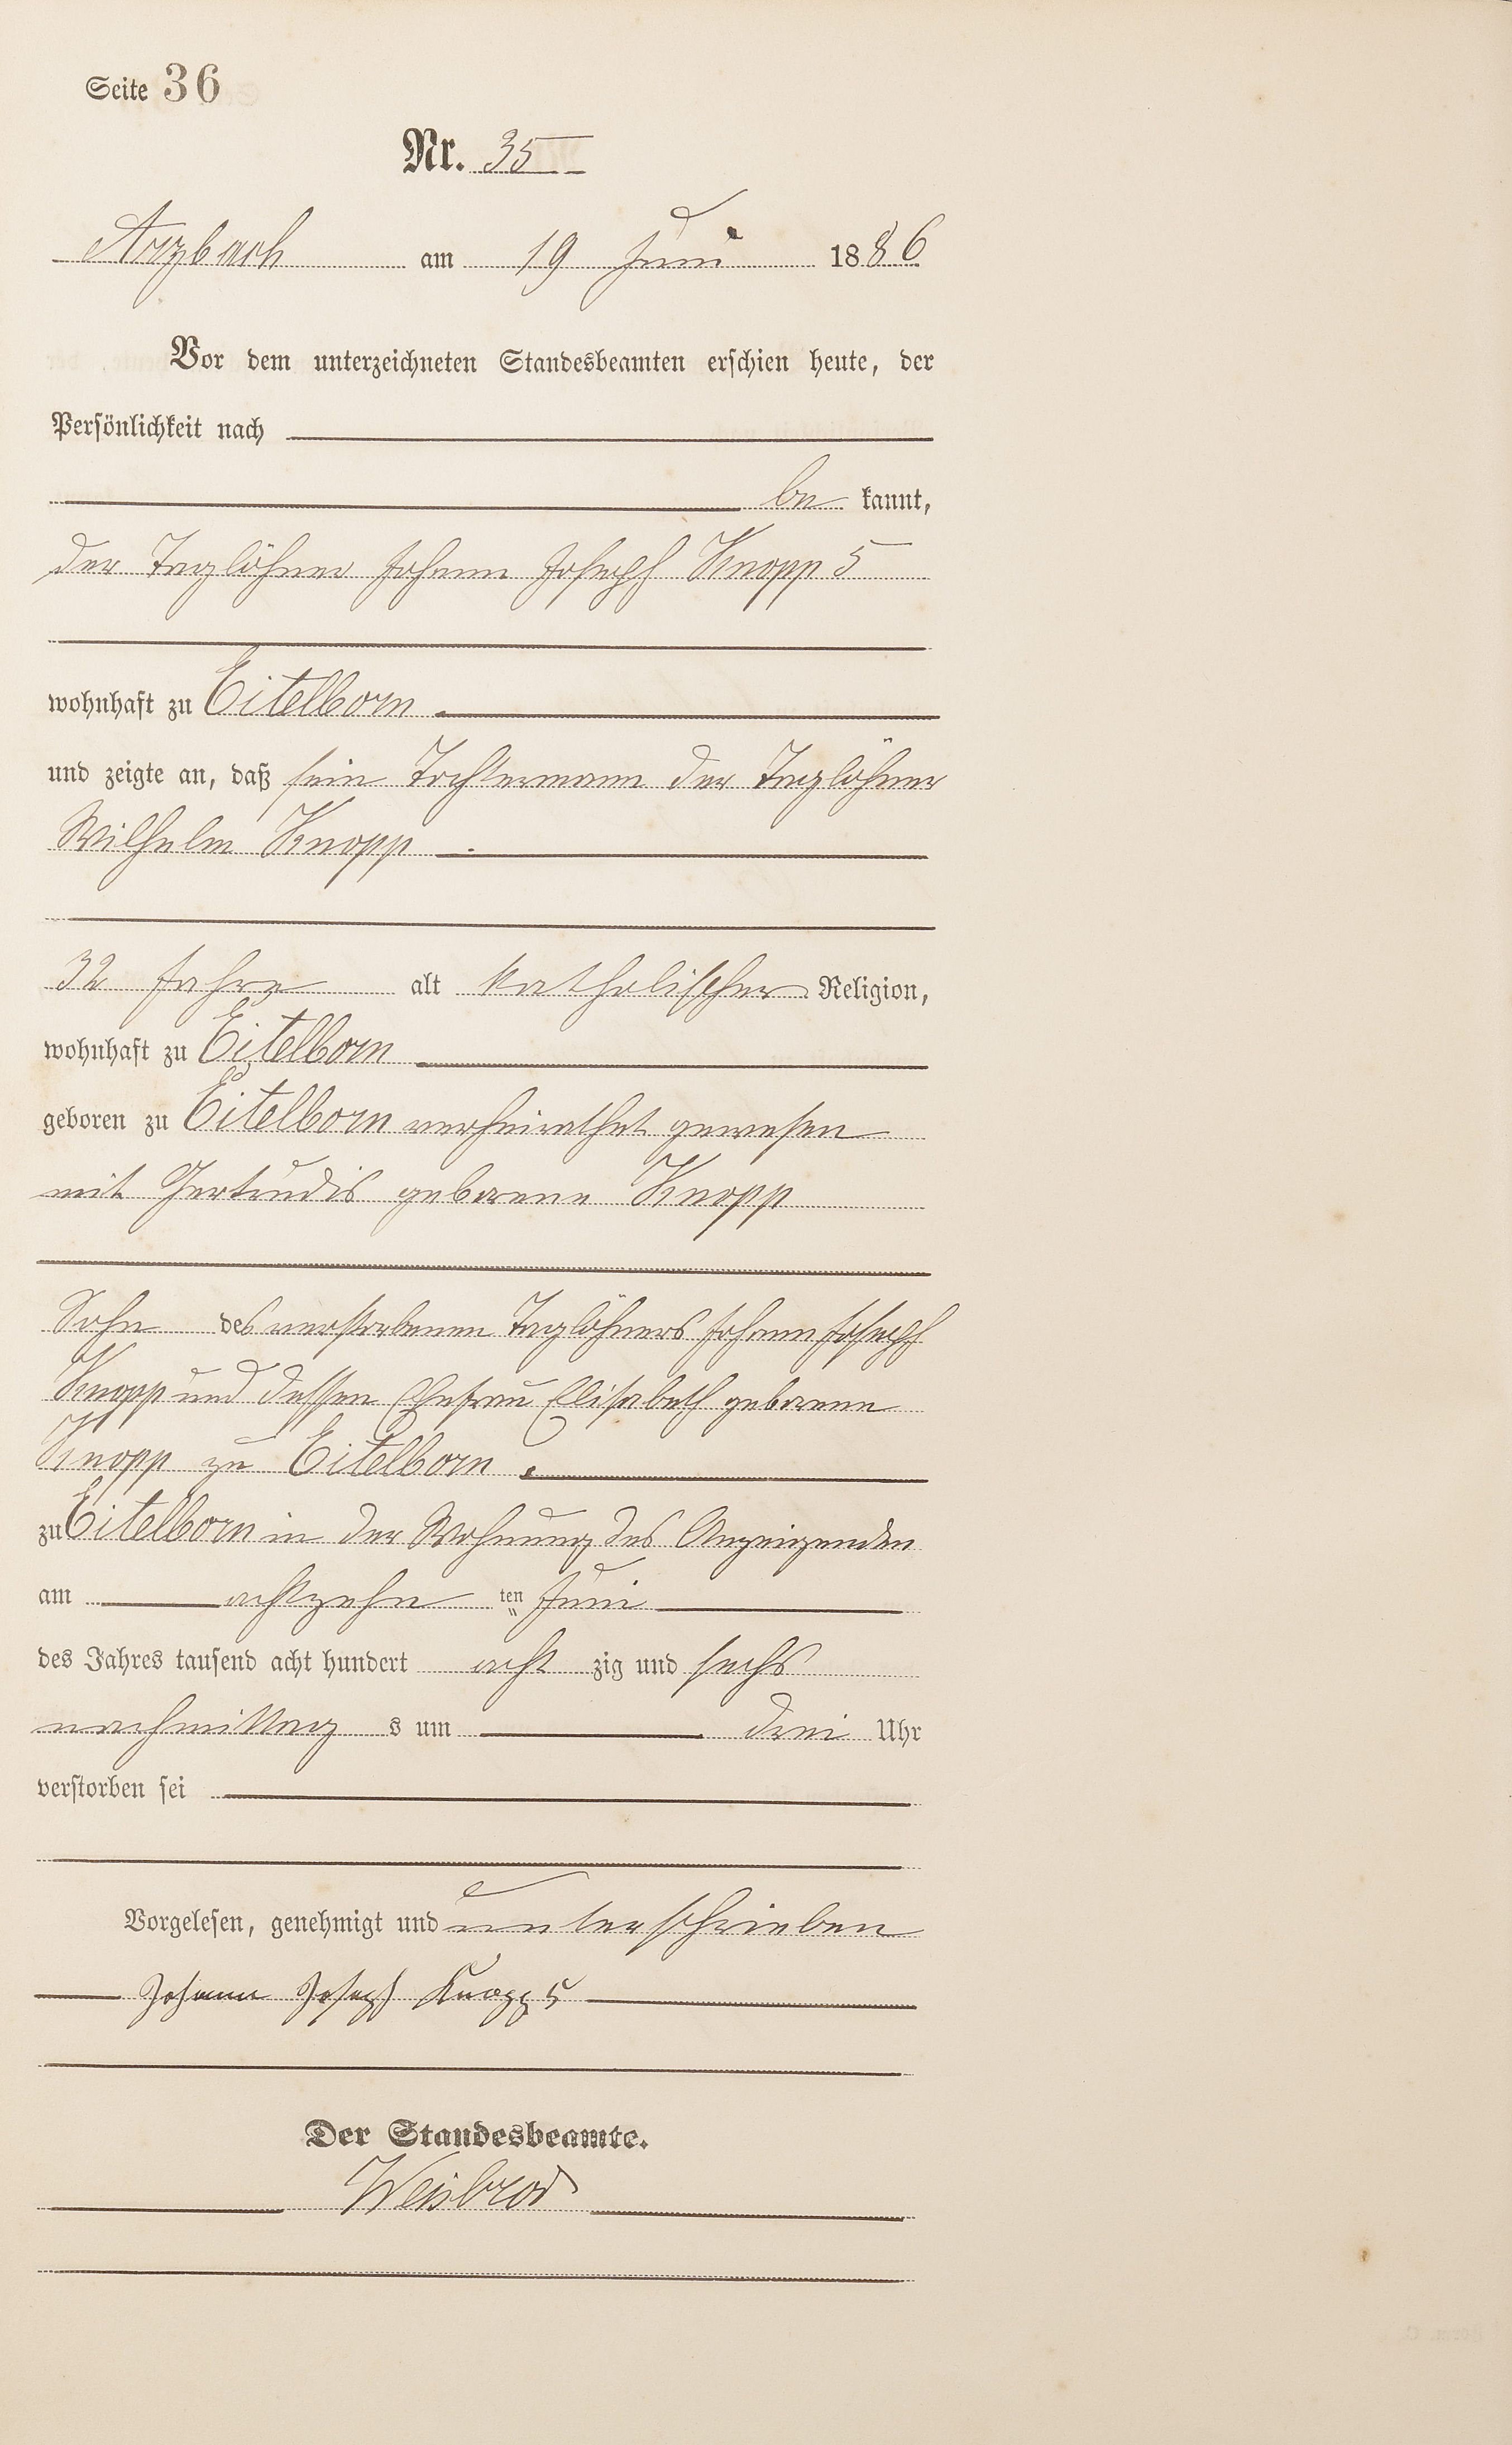 Seite 36
Nr. 35
Arzbach am 19 Juni 1886
Vor dem unterzeichneten Standesbeamten erschien heute, der
Persönlichkeit nach
be kannt,
der Taglöhner Johann Joseph Knopp 5
wohnhaft zu Eitelborn
und zeigte an, daß sein Tochtermann der Taglöhner
Wilhelm Knopp
32 Jahre alt katholischer Religion,
wohnhaft zu Eitelborn
geboren zu Eitelborn verheirathet gewesen
mit Gertrudis geborene Knopp
Sohn des verstorbenen Taglöhners Johann Joseph
Knopp und dessen Ehefrau Elisabeth geborene
Knopp zu Eitelborn.
zu Eitelborn in der Wohnung des Anzeigenden
am achtzehn ten Juni
des Jahres tausend acht hundert acht zig und sechs
nachmittag s um drei Uhr
verstorben sei
Vorgelesen, genehmigt und unterschrieben
Johann Joseph Knopp 5
Der Standesbeamte.
Weisbrod